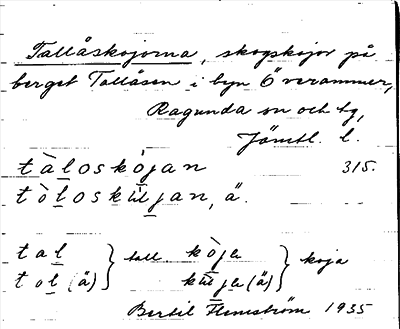 Tallåskojorna, skogskojor på
berget Tallåsen i byn Överammer,
Ragunda sn och tg,
Jämtl. l.
tàloskòjan 315.
tòloskɯ̀jan, ä.
tal } tall kòja } koja
tol (ä) kɯ̀ja (ä)
Bertil Flemström 1935